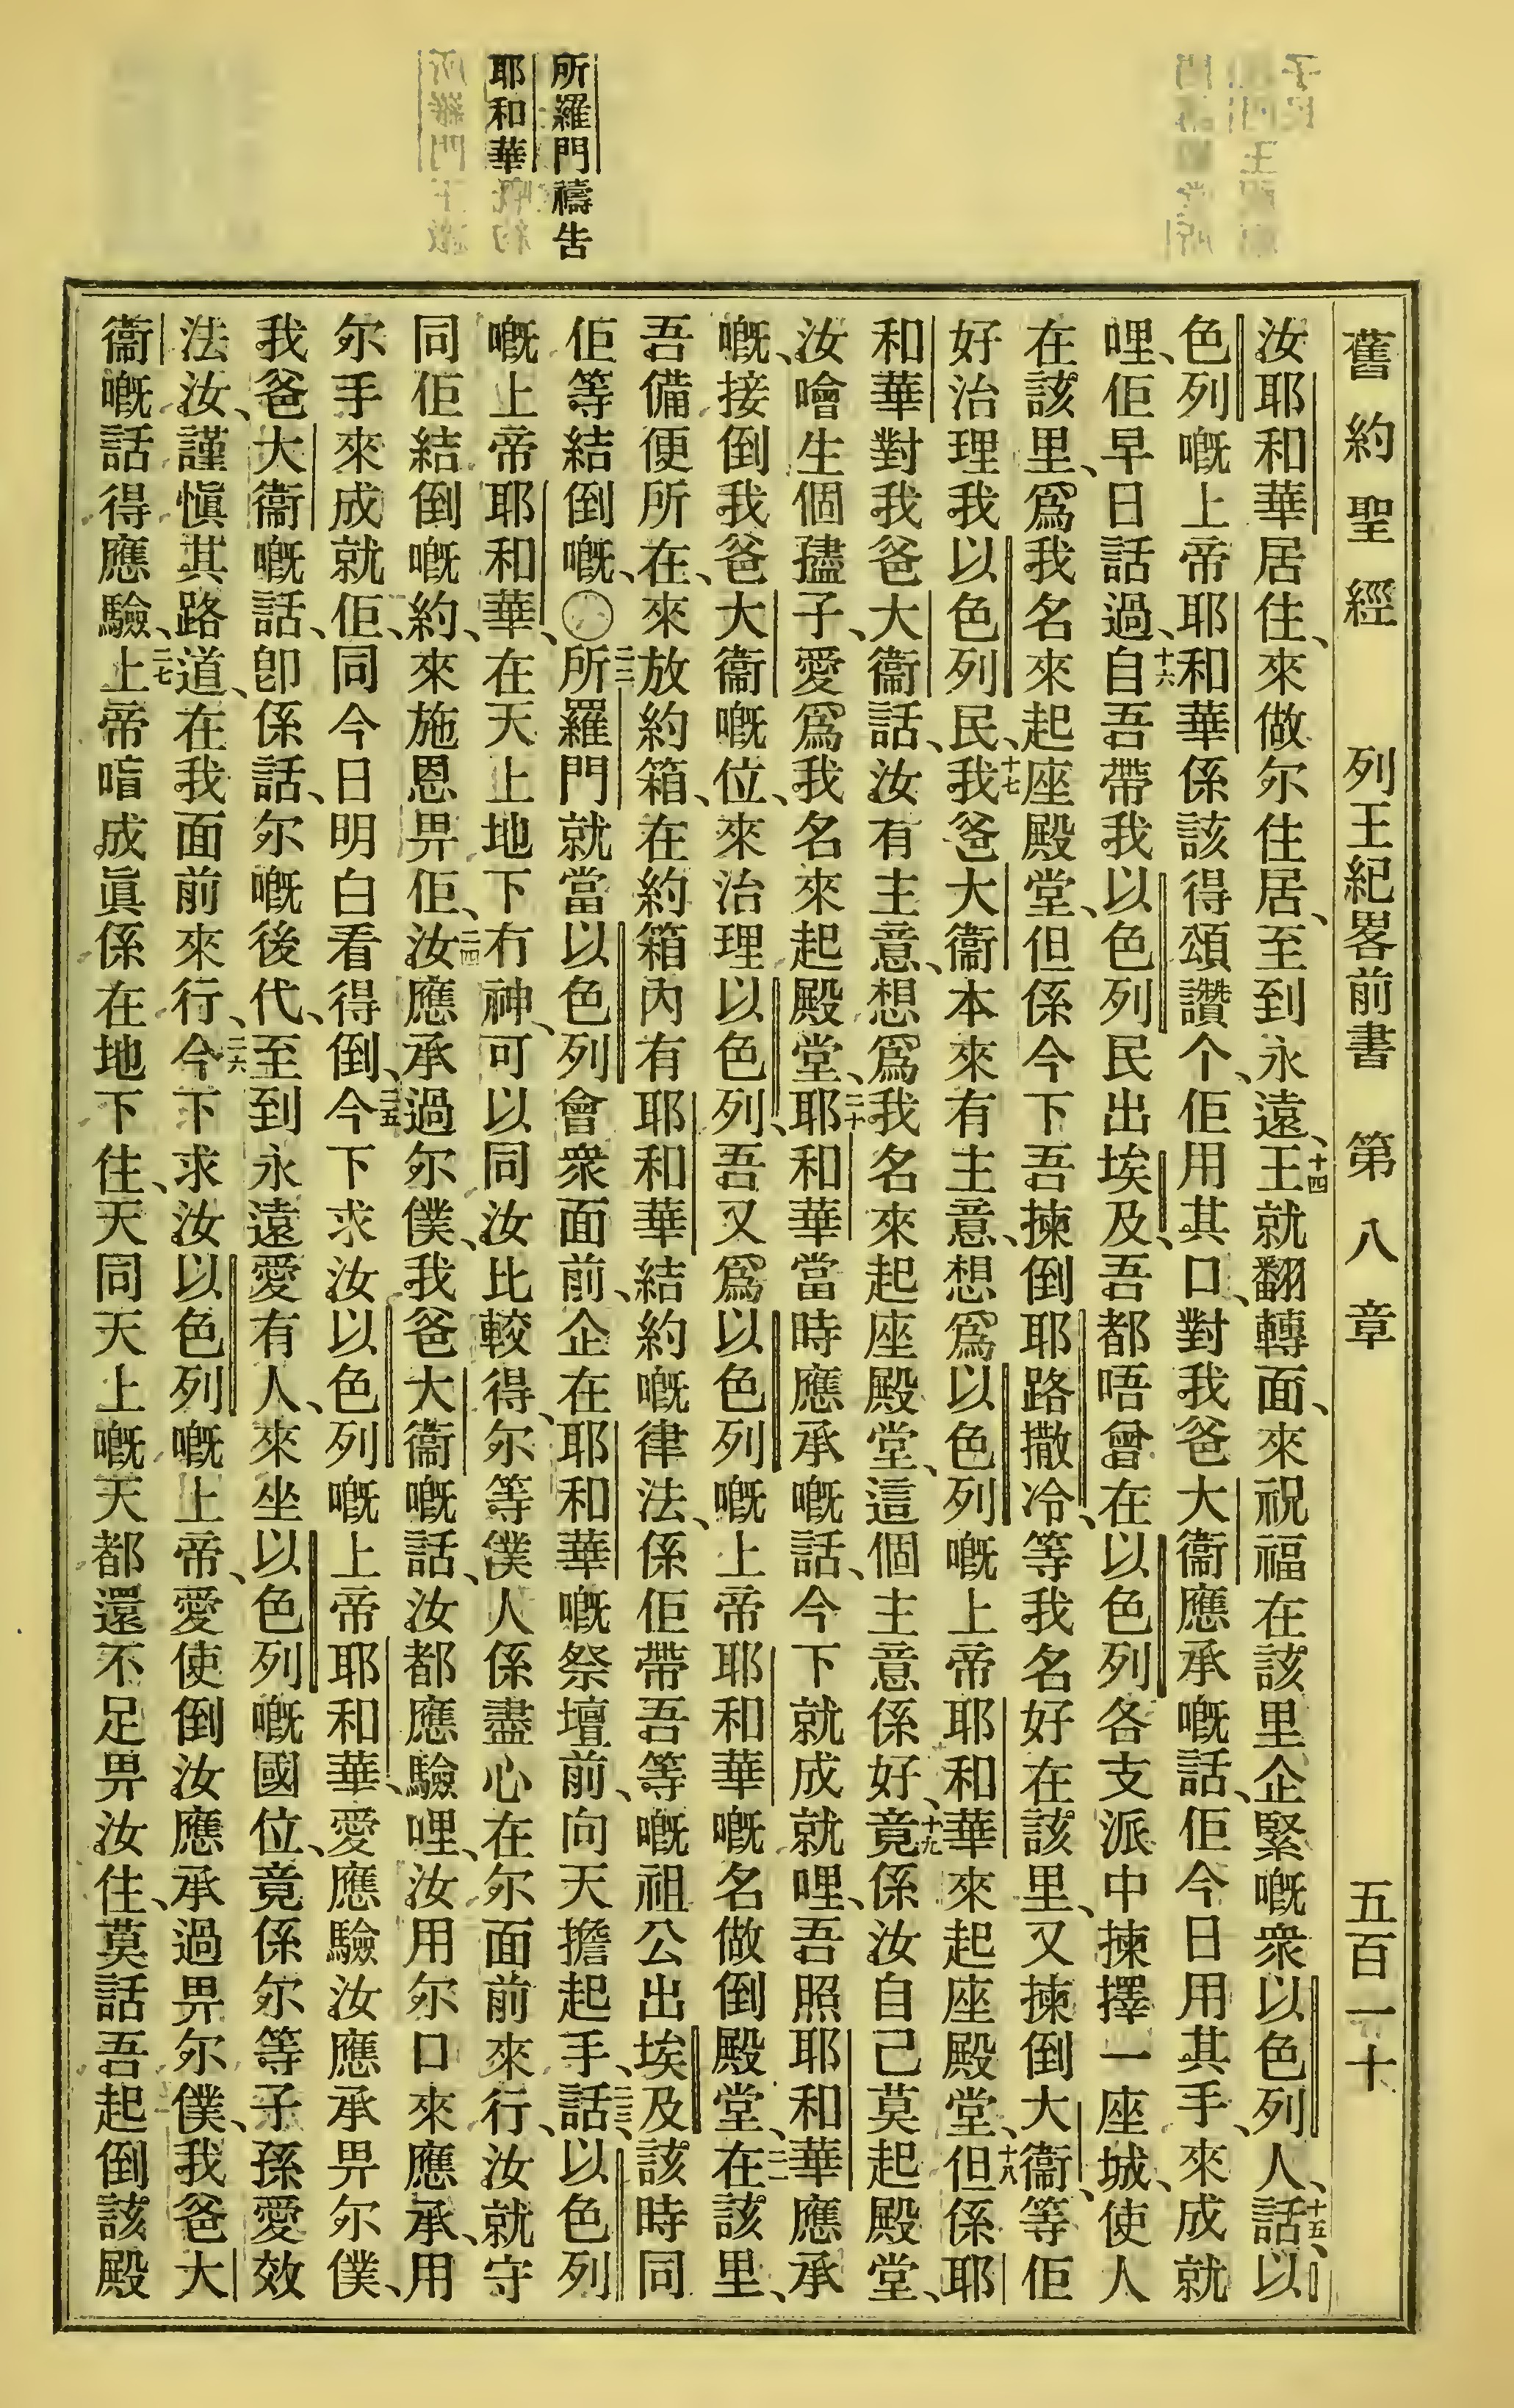 所羅門禱告
耶和華
舊約聖經 列王紀畧前書 第八章 五百一十
汝耶和華居住、來做尔住居、至到永遠、十四王就翻轉面、來祝福在該里企緊嘅衆以色列人、十五話、以
色列嘅上帝耶和華係該得頌讚个、佢用其口、對我爸大衞應承嘅話、佢今日用其手、來成就
哩、佢早日話過、十六自吾帶我以色列民出埃及、吾都唔曾在以色列各支派中揀擇一座城、使人
在該里、爲我名來起座殿堂、但係今下吾揀倒耶路撒冷、等我名好在該里、又揀倒大衞、等佢
好治理我以色列民、十七我爸大衞本來有主意、想爲以色列嘅上帝耶和華來起座殿堂、十八但係耶
和華對我爸大衞話、汝有主意、想爲我名來起座殿堂、這個主意係好、十九竟係汝自己莫起殿堂、
汝噲生個孻子、愛爲我名來起殿堂、二十耶和華當時應承嘅話、今下就成就哩、吾照耶和華應承
嘅、接倒我爸大衞嘅位、來治理以色列、吾又爲以色列嘅上帝耶和華嘅名做倒殿堂、二一在該里、
吾備便所在、來放約箱、在約箱內有耶和華結約嘅律法、係佢帶吾等嘅祖公出埃及該時同
佢等結倒嘅、〇二二所羅門就當以色列會衆面前、企在耶和華嘅祭壇前、向天擔起手、二三話、以色列
嘅上帝耶和華、在天上地下冇神、可以同汝比較得、尔等僕人係盡心在尔面前來行、汝就守
同佢結倒嘅約、來施恩畀佢、二四汝應承過尔僕、我爸大衞嘅話、汝都應驗哩、汝用尔口來應承、用
尔手來成就佢、同今日明白看得倒、二五今下求汝以色列嘅上帝耶和華、愛應驗汝應承畀尔僕、
我爸大衞嘅話、卽係話、尔嘅後代、至到永遠愛有人、來坐以色列嘅國位、竟係尔等子孫愛效
法汝、謹愼其路道、在我面前來行、二六今下求汝以色列嘅上帝、愛使倒汝應承過畀尔僕、我爸大
衞嘅話得應驗、二七上帝喑成眞係在地下住、天同天上嘅天都還不足畀汝住、莫話吾起倒該殿